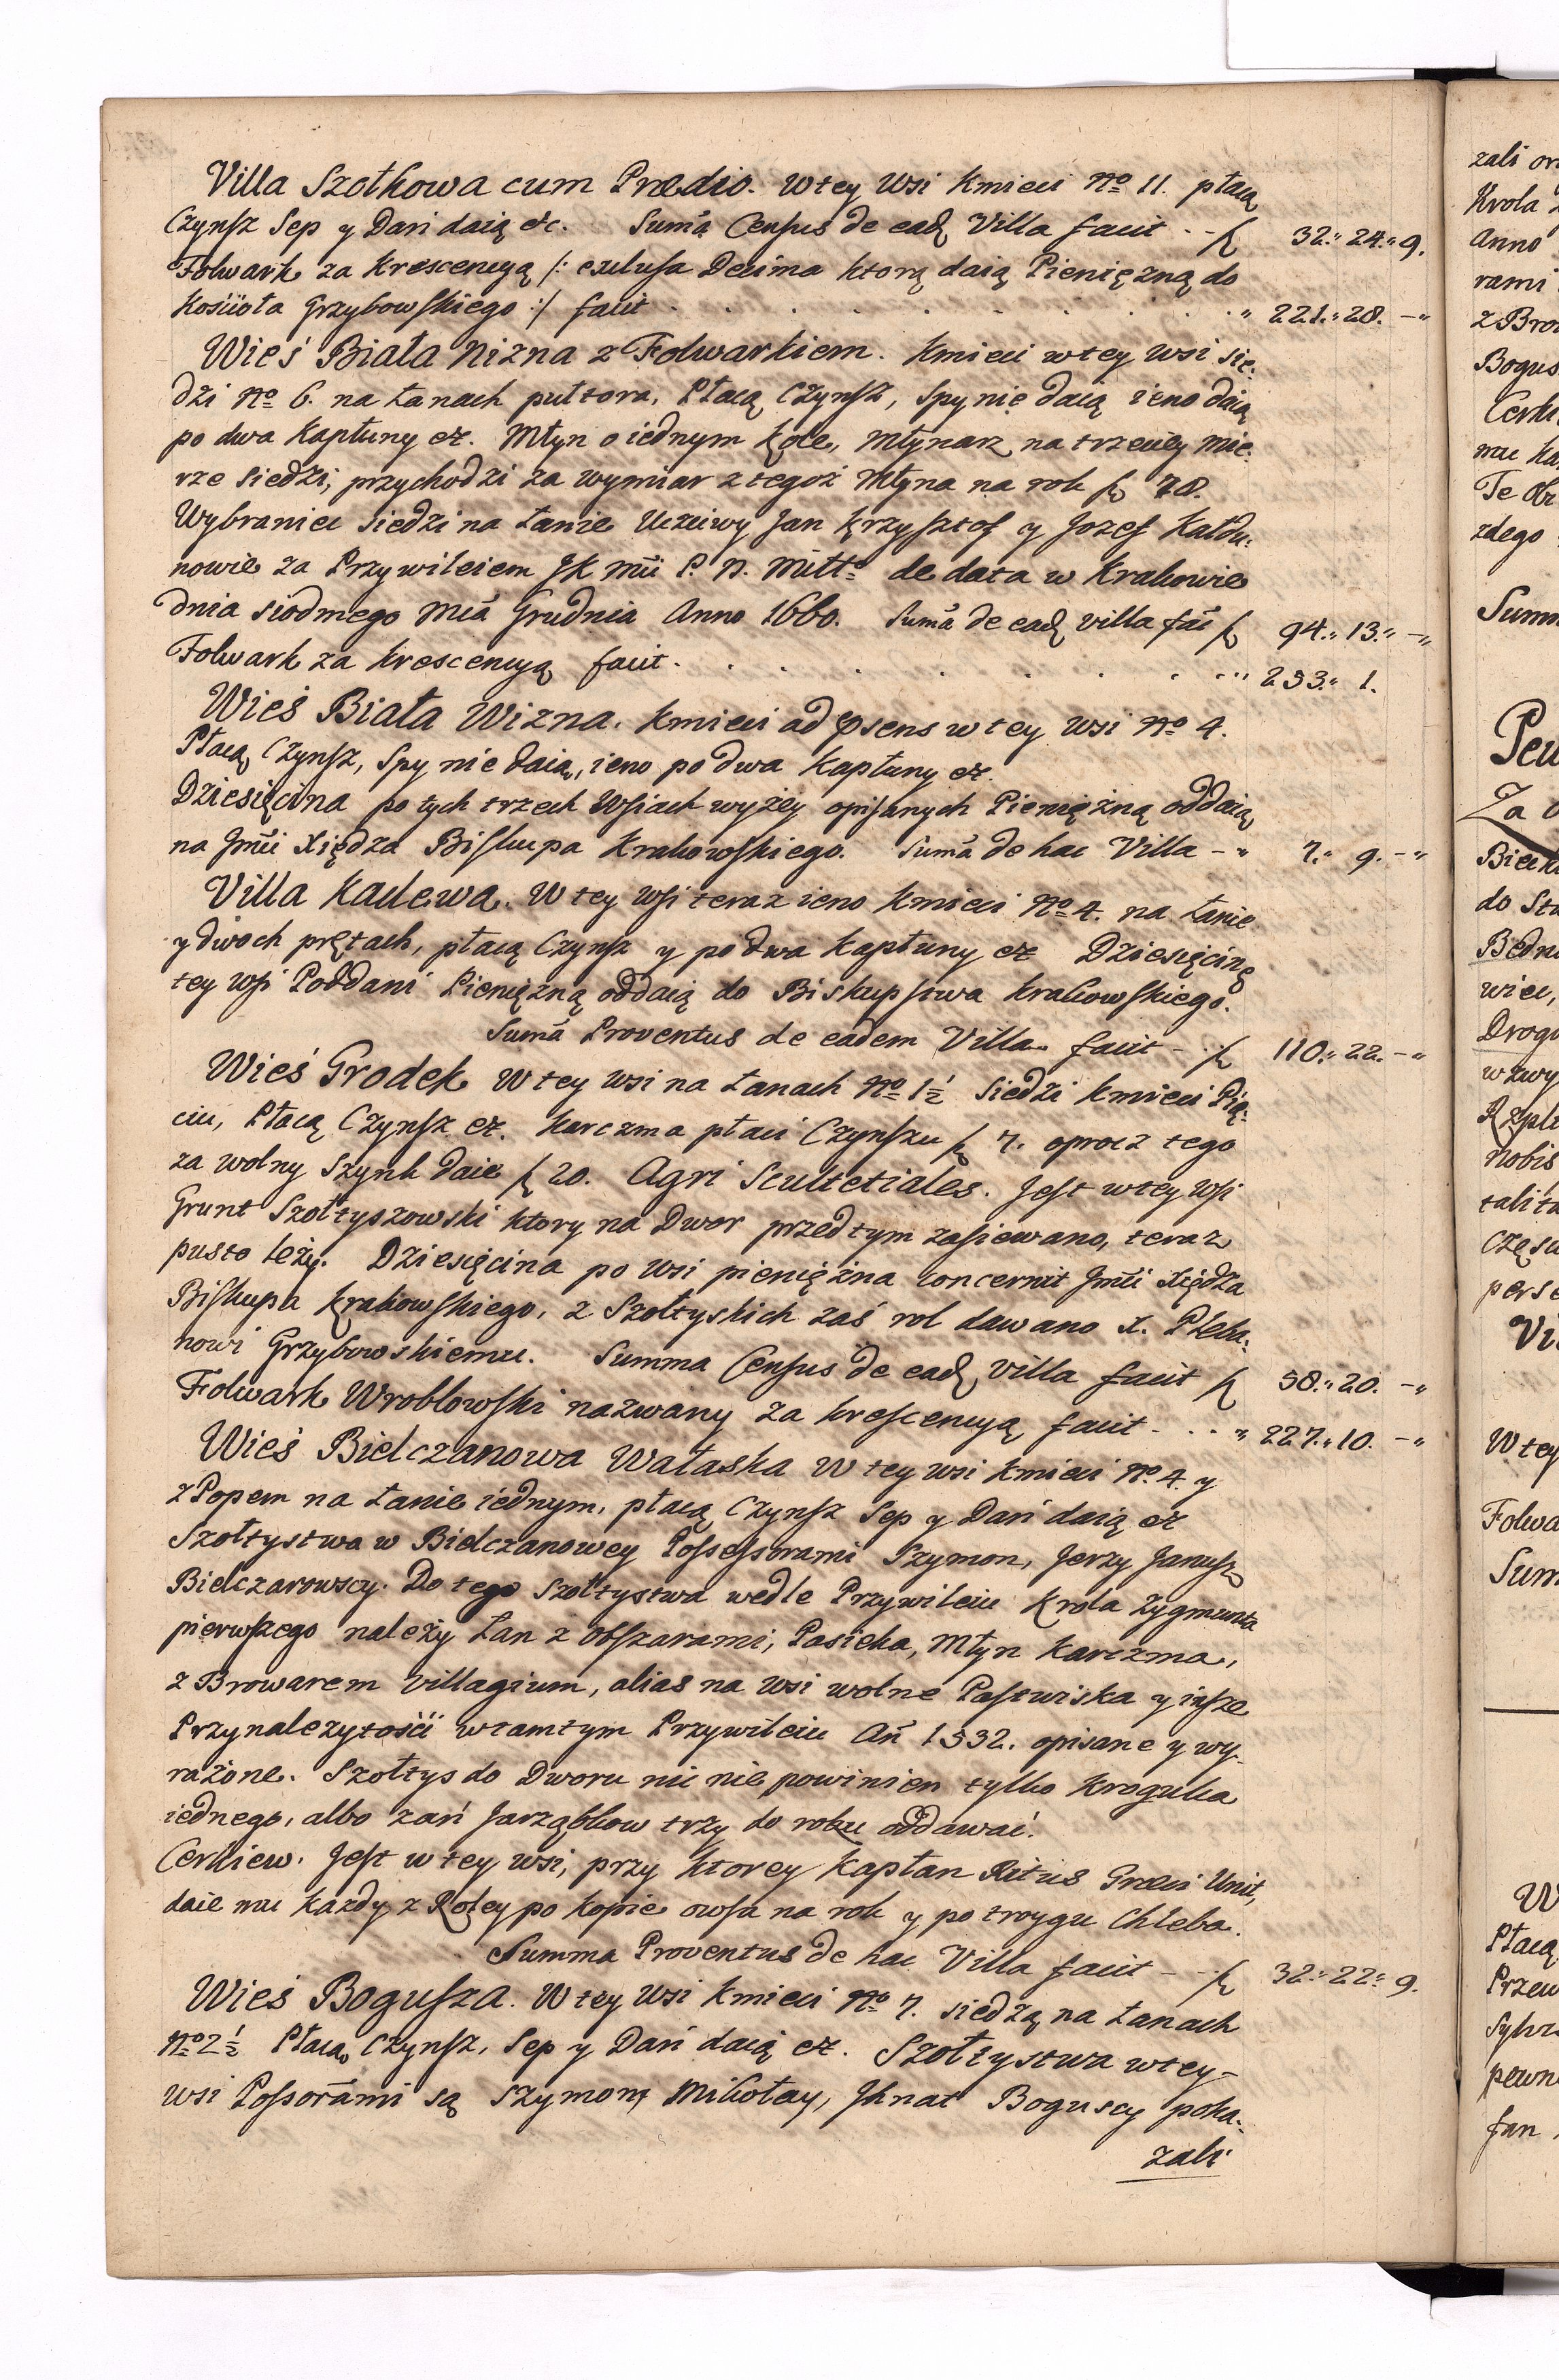 Villa Szotkowa cum Prædio. W tey Wsi Kmieci No 11. płacą
Czynsz Sep y Dań daią etc. Suma Census de ead Villa facit - - f 32.„ 24.„ 9.
Folwark za Krescencyą /: exclusa Decima ktorą daią Pieniężną do
Kościoła Grzybowskiego :/ facit . . . . . . . . „ 221.„ 28. -„
Wieś Biała Nizna z Folwarkiem. Kmieci w tey Wsi sie:
dzi No 6. na Łanach pułtora, Płacą Czynsz, Spy nie daią ieno daią
po dwa Kapłuny etc. Młyn o iednym Kole, Młynarz na trzeciey Mie:
rze siedzi, przychodzi za wymiar z tegoż Młyna na rok f 78.
Wybraniec siedzi na Łanie Uczciwy Jan Krzysztof y Jozef Kałdu:
nowie za Przywileiem JK Mci P. N. Mittō de data w Krakowie
dnia siodmego Mcā Grudnia Anno 1660. Sumā de ead villa fac f 94.„ 13.„ -„
Folwark za Krescencyą facit . . . . . . . „ 253.„ 1.
Wieś Biała Wizna. Kmieci ad psens w tey Wsi No 4.
Płacą Czynsz, Spy nie daią, ieno po dwa Kapłuny etc.
Dziesięcina po tych trzech Wsiach wyżey opisanych Pieniężną oddaią
na Jmci Xiędza Biskupa Krakowskiego. Sumā de hac Villa - „ 7.„ 9. -„
Villa Kąclewa. W tey Wsi teraz ieno Kmieci No 4. na Łanie
y dwoch prętach, płacą Czynsz y po dwa Kapłuny etc Dziesięcinę
tey Wsi Poddani Pieniężną oddaią do Biskupstwa Krakowskiego.
Sumā Proventus de eadem Villa facit - - f 110.„ 22. -„
Wieś Grodek W tey Wsi na Łanach No 1½ Siedzi Kmieci Pię:
ciu, Płacą Czynsz etc. Karczma płaci Czynszu f 7. oprocz tego
za wolny Szynk daie f 20. Agri Scultetiales. Jest w tey Wsi
Grunt Szołtyszowski ktory na Dwor przedtym zasiewano, teraz
pusto leży. Dziesięcina po Wsi pieniężna concernit Jmci Xiędza
Biskupa Krakowskiego, z Szołtyskich zaś rol dawano X. Pleba:
nowi Grzybowskiemu. Summa Census de ead villa facit f 58.„ 20. -„
Folwark Wroblowski nazwany za krescencyą facit - . . „ 227.„ 10. -„
Wieś Bielczanowa Wałaska W tey wsi Kmieci No 4. y
z Popem na Łanie iednym, płacą Czynsz Sep y Dań daią etc
Szołtystwa w Bielczanowey Possessorami Szymon, Jerzy Janusz
Bielczarowscy. Do tego Szołtystwa wedle Przywileiu Krola Zygmunta
pierwszego należy Łan z obszarami, Pasieka, Młyn Karczma,
z Browarem villagium, alias na wsi wolne Pastwiska y insze
Przynalezytości w tamtym Przywileiu Añ 1532. opisane y wy-
rażone. Szołtys do Dworu nic nie powinien tylko Krogulca
iednego, albo zań Jarząbkow trzy do roku oddawać.
Cerkiew. Jest w tey wsi, przy ktorey Kapłan Ritus Græci Unit,
daie mu każdy z Roley po kopie owsa na rok y po troygu Chleba.
Summa Proventus de hac Villa facit - - f 32.„ 22.„ 9.
Wieś Bogusza. W tey Wsi Kmieci No 7. siedzą na Łanach
No 2½ Płacą Czynsz, Sep y Dań daią etc. Szołtystwa w tey-
wsi Possorami są Szymon, Mikołay, Ihnat Boguscy poka:
zali